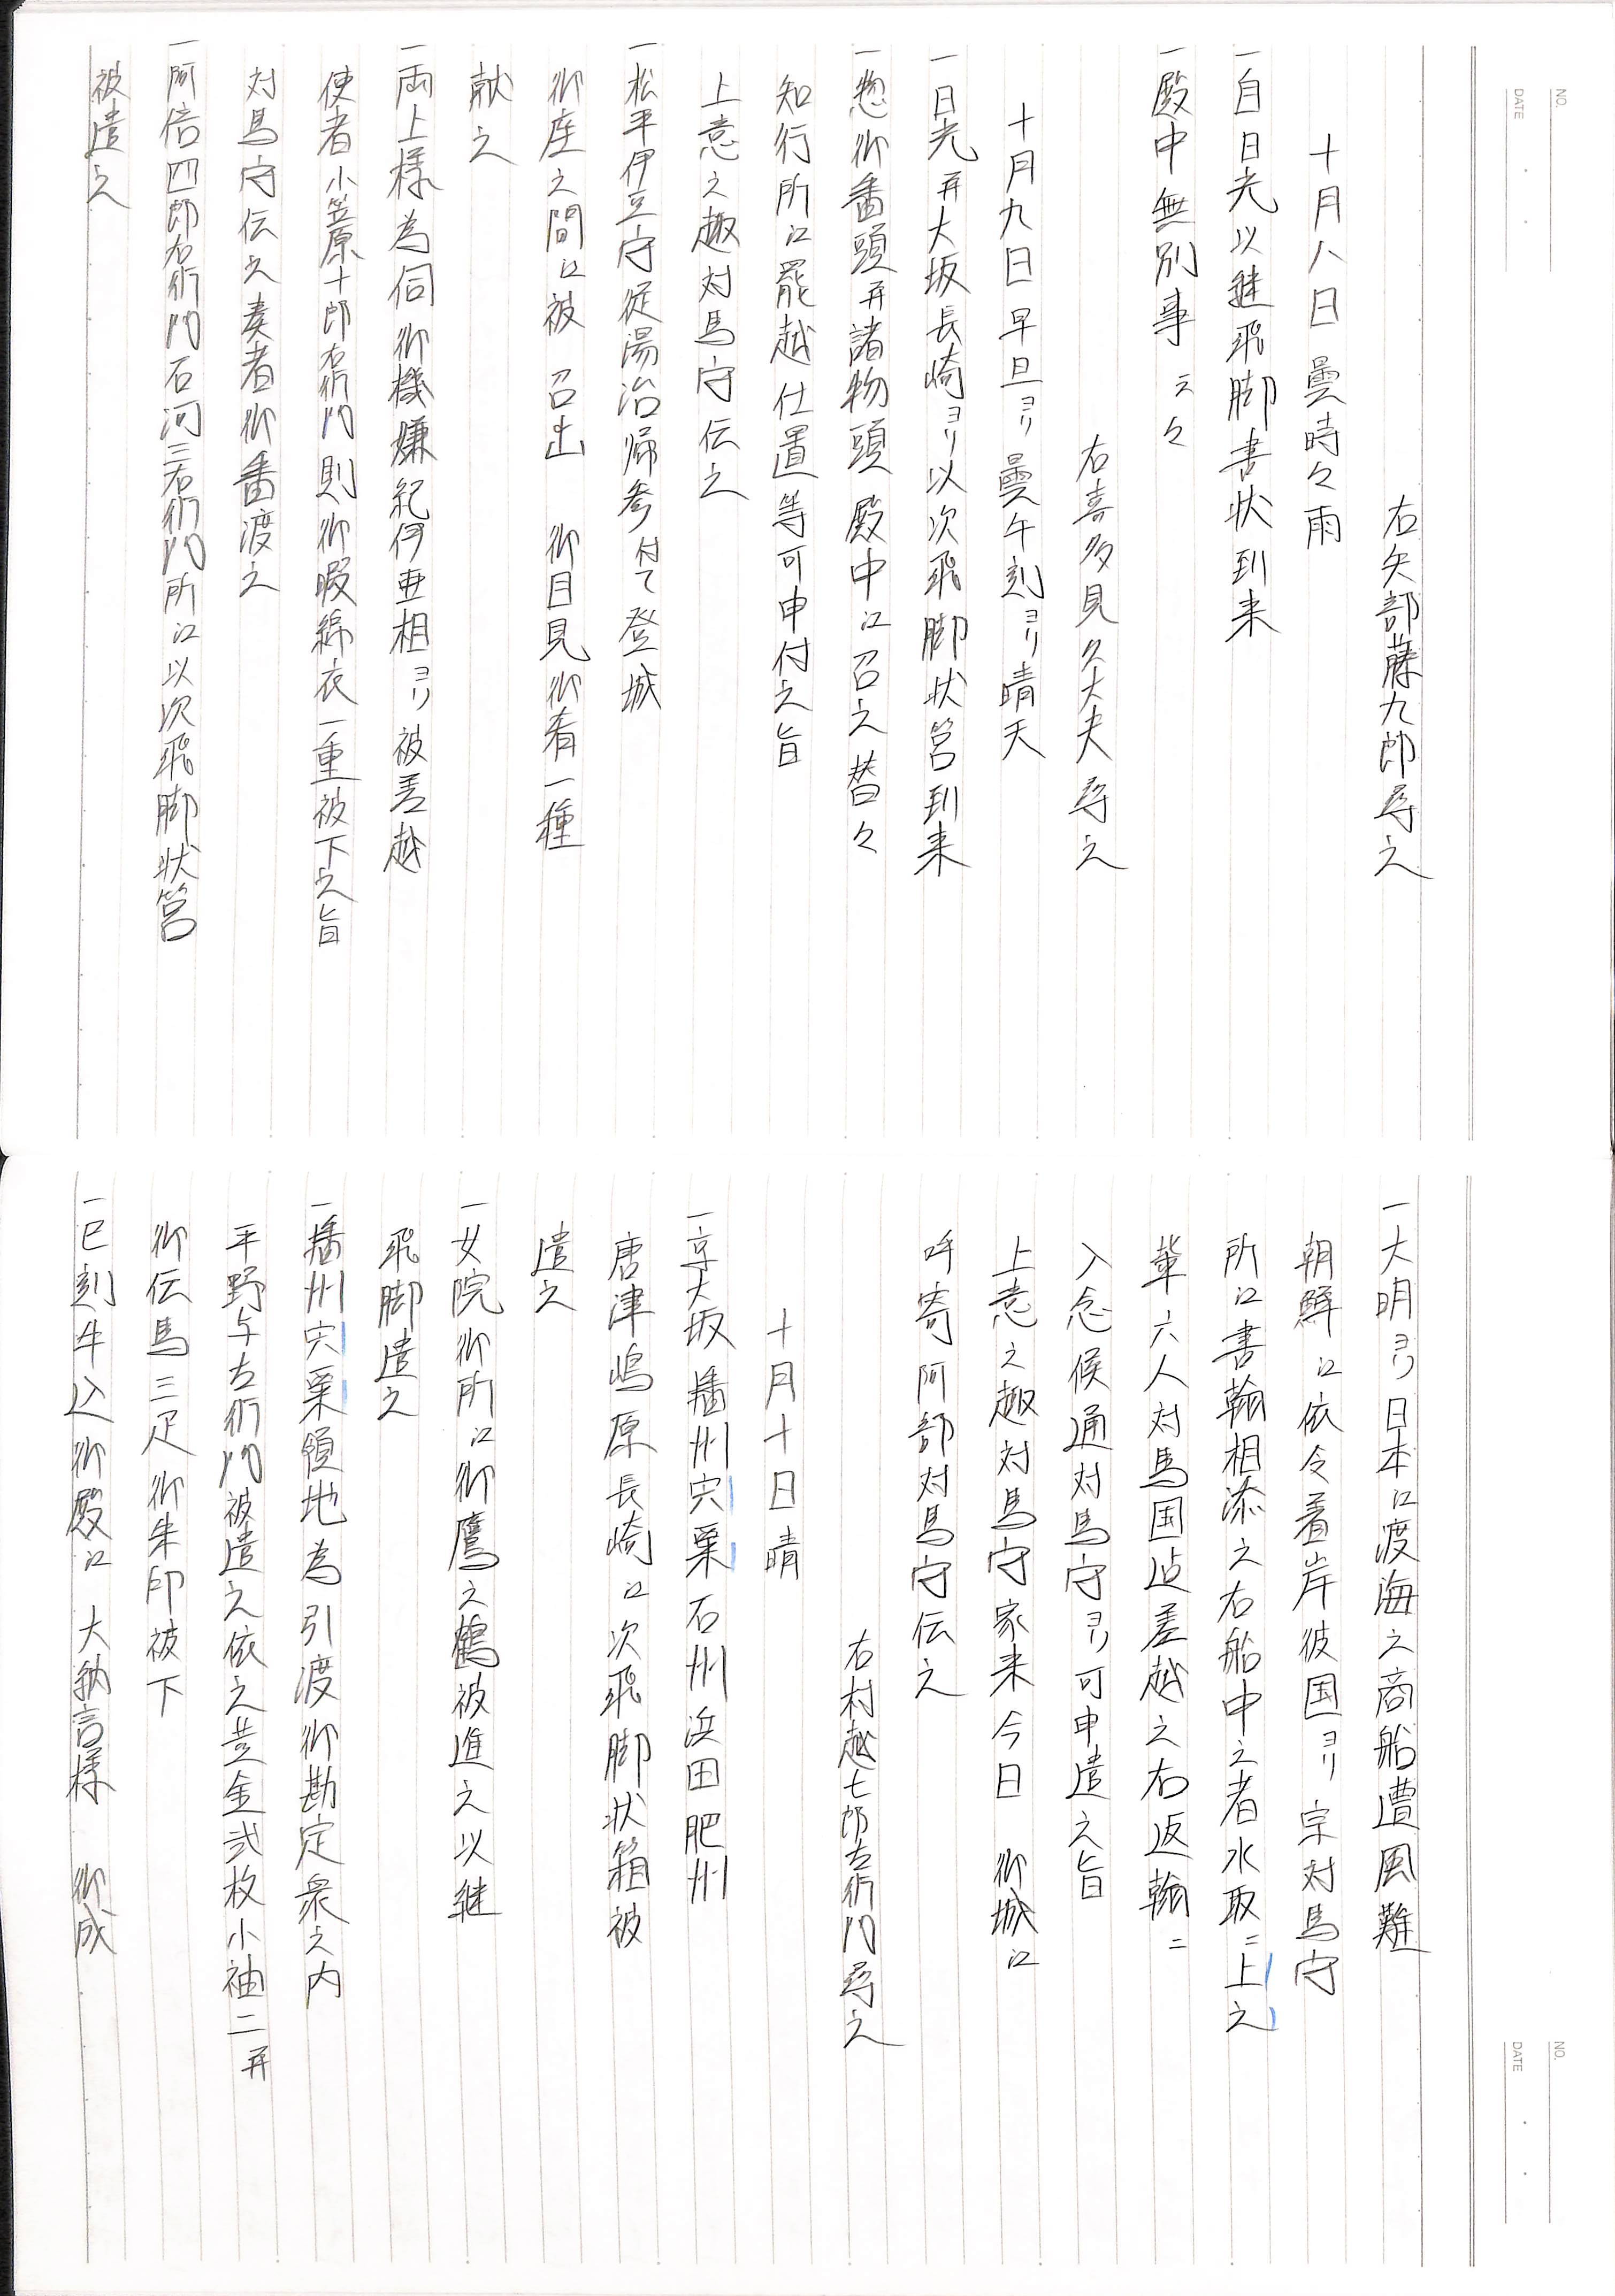 右矢部藤九郎尋之
十月八日 曇時々雨
一自日光以継飛脚書状到来
一殿中無別事 云々
右喜多見久大夫尋之
十月九日早旦ヨリ曇午刻ヨリ晴天
一日光并大坂長崎ヨリ以次飛脚状筥到来
一惣御番頭并諸物頭 殿中江召之替々
知行所江罷越仕置等可申付之旨
上意之趣対馬守伝之
一松平伊豆守従湯治帰参付て登城
御座之間江被 召出 御目見御肴一種
献之
一両上様為伺御機嫌紀伊亜相ヨリ被差越
使者小笠原十郎右衛門則御暇綿衣一重被下之旨
対馬守伝之奏者御番渡之
一阿倍四郎右衛門石河三右衛門所江以次飛脚状筥
被遣之
NO.
DATE
一大明ヨリ日本江渡海之商船遭風難
朝鮮江依令着岸彼国ヨリ 宗対馬守
所江書翰相添之右船中之者水取ニ上之
輩六人対馬国迠差越之右返翰ニ
入念候通対馬守ヨリ可申遣之旨
上意之趣対馬守家来今日 御城江
呼寄阿部対馬守伝之
右村越七郎左衛門尋之
十月十日晴
一京大坂播州宍粟石州浜田肥州
唐津嶋原長崎江次飛脚状箱被
遣之
一女院御所江御鷹之鶴被進之以継
飛脚遣之
一播州宍粟領地為引渡御勘定衆之内
平野与左衛門被遣之依之黄金弐枚小袖二并
御伝馬三疋御朱印被下
一巳刻牛込御殿江 大納言様 御成
NO.
DATE